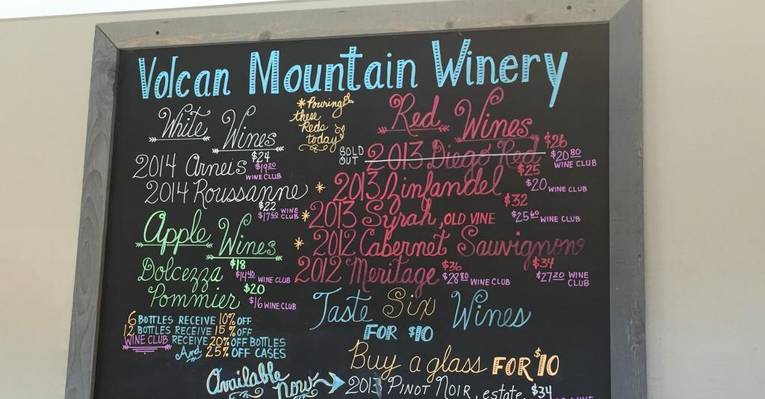 Volcan Mountain Winery
White Wines
2014 Arneis $24
$19.20 WINE CLUB
2014 Roussanne
$22
$17.60 WINE CLUB
Apple Wines
Dolcezza $18
$14.40 WINE CLUB
Pommier $20
$16 WINE CLUB
6 BOTTLES RECEIVE 10% OFF
12 BOTTLES RECEIVE 15% OFF
WINE CLUB RECEIVE 20% OFF BOTTLES
And 25% OFF CASES
* Pouring
these
Reds
today
Red Wines
SOLD OUT 2013 Diego Red $26
$20.80 WINE CLUB
* 2013 Zinfandel $25
$20 WINE CLUB
* 2013 Syrah, OLD VINE $32
$25.60 WINE CLUB
* 2012 Cabernet Sauvignon
$34
$27.20 WINE CLUB
2012 Meritage $36
$28.80 WINE CLUB
Taste Six Wines
FOR $10
Buy a glass FOR $10
Available Now
2013 PINOT NOIR, estate, $34